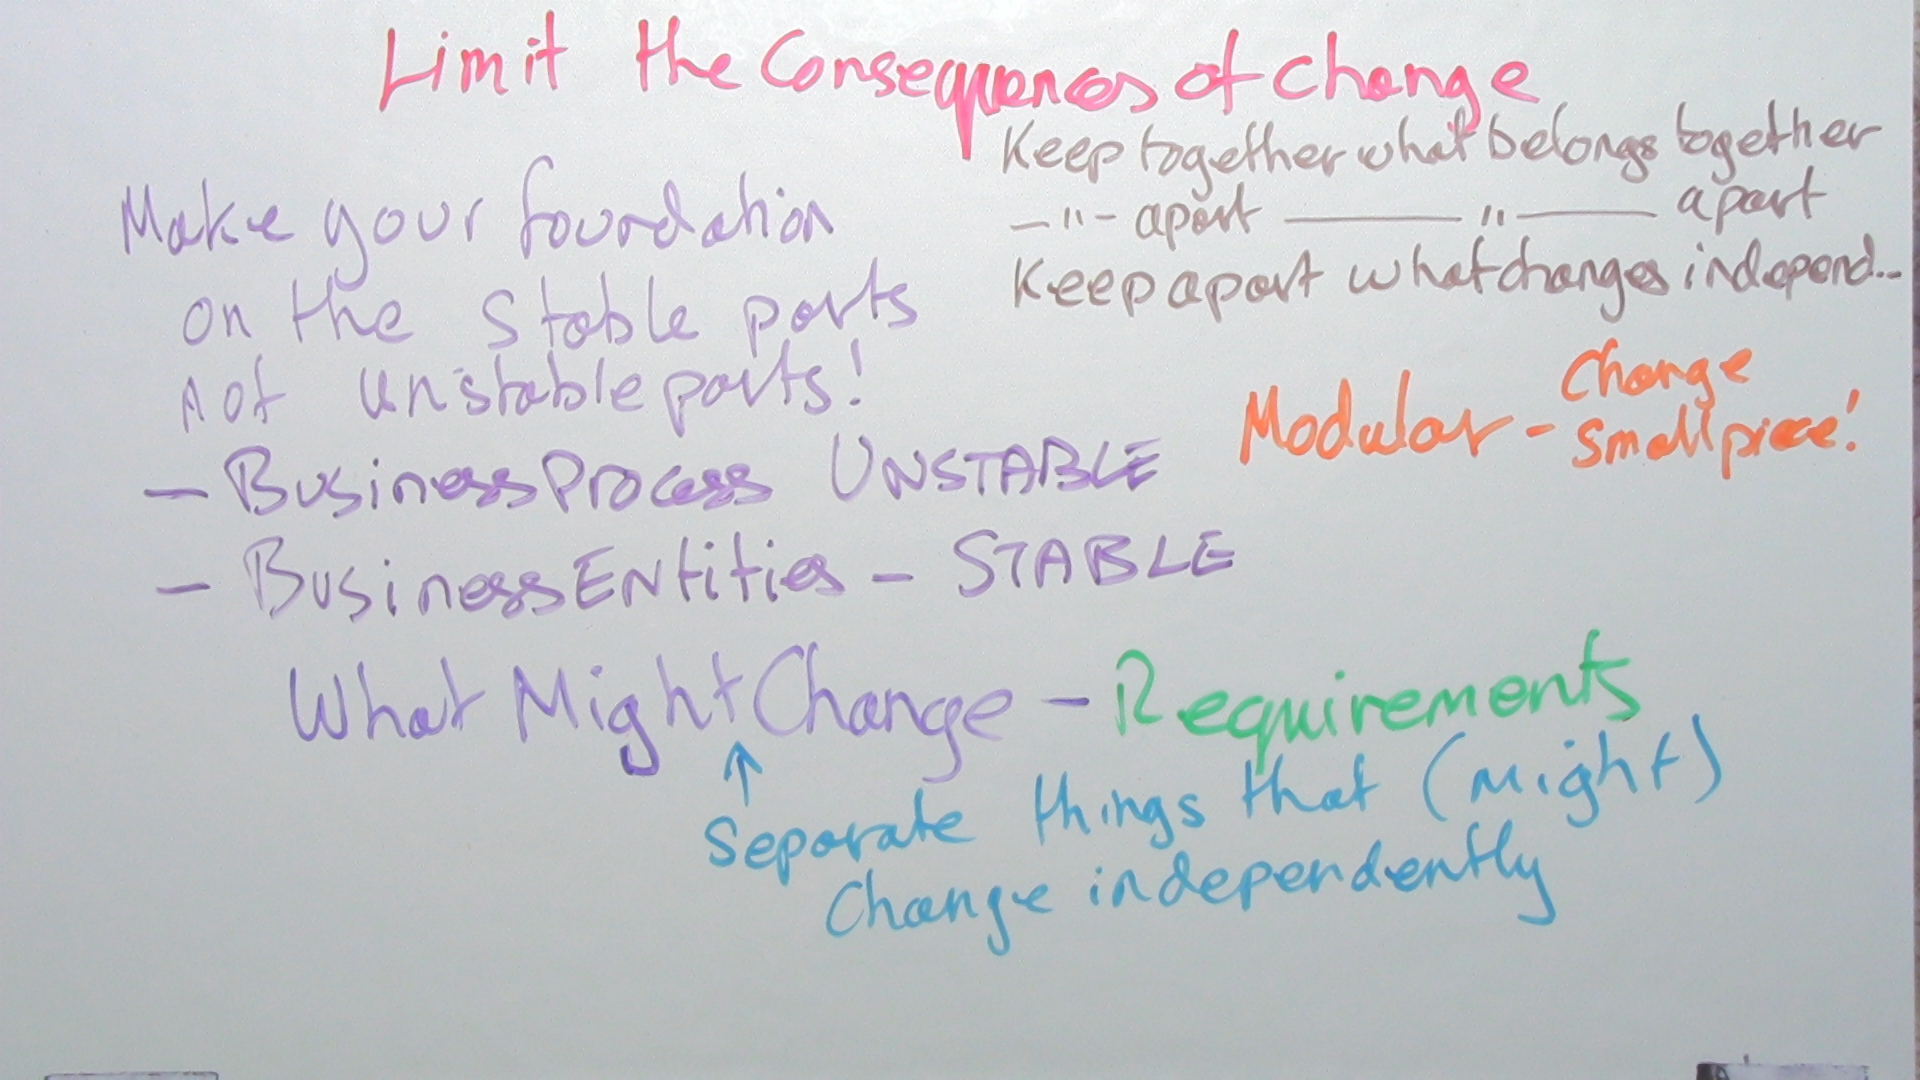 Limit the Consequences of change
Keep together what belongs together
—"— apart ———"——— apart
Keep apart what changes independ...
Make your foundation
on the stable parts
not unstable parts!
Modular - Change
small piece!
— Business Process UNSTABLE
— Business ENtities — STABLE
What Might Change — Requirements
↑
Separate things that (might)
Change independently